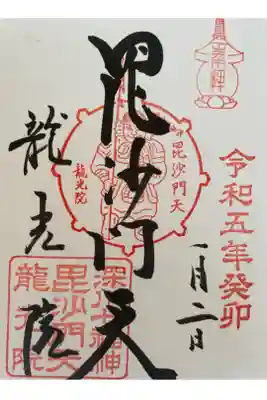 令和五年癸卯
一月二日
毘沙門天
毘沙門天
龍光院
龍光院
深川七福神
毘沙門天
龍光院